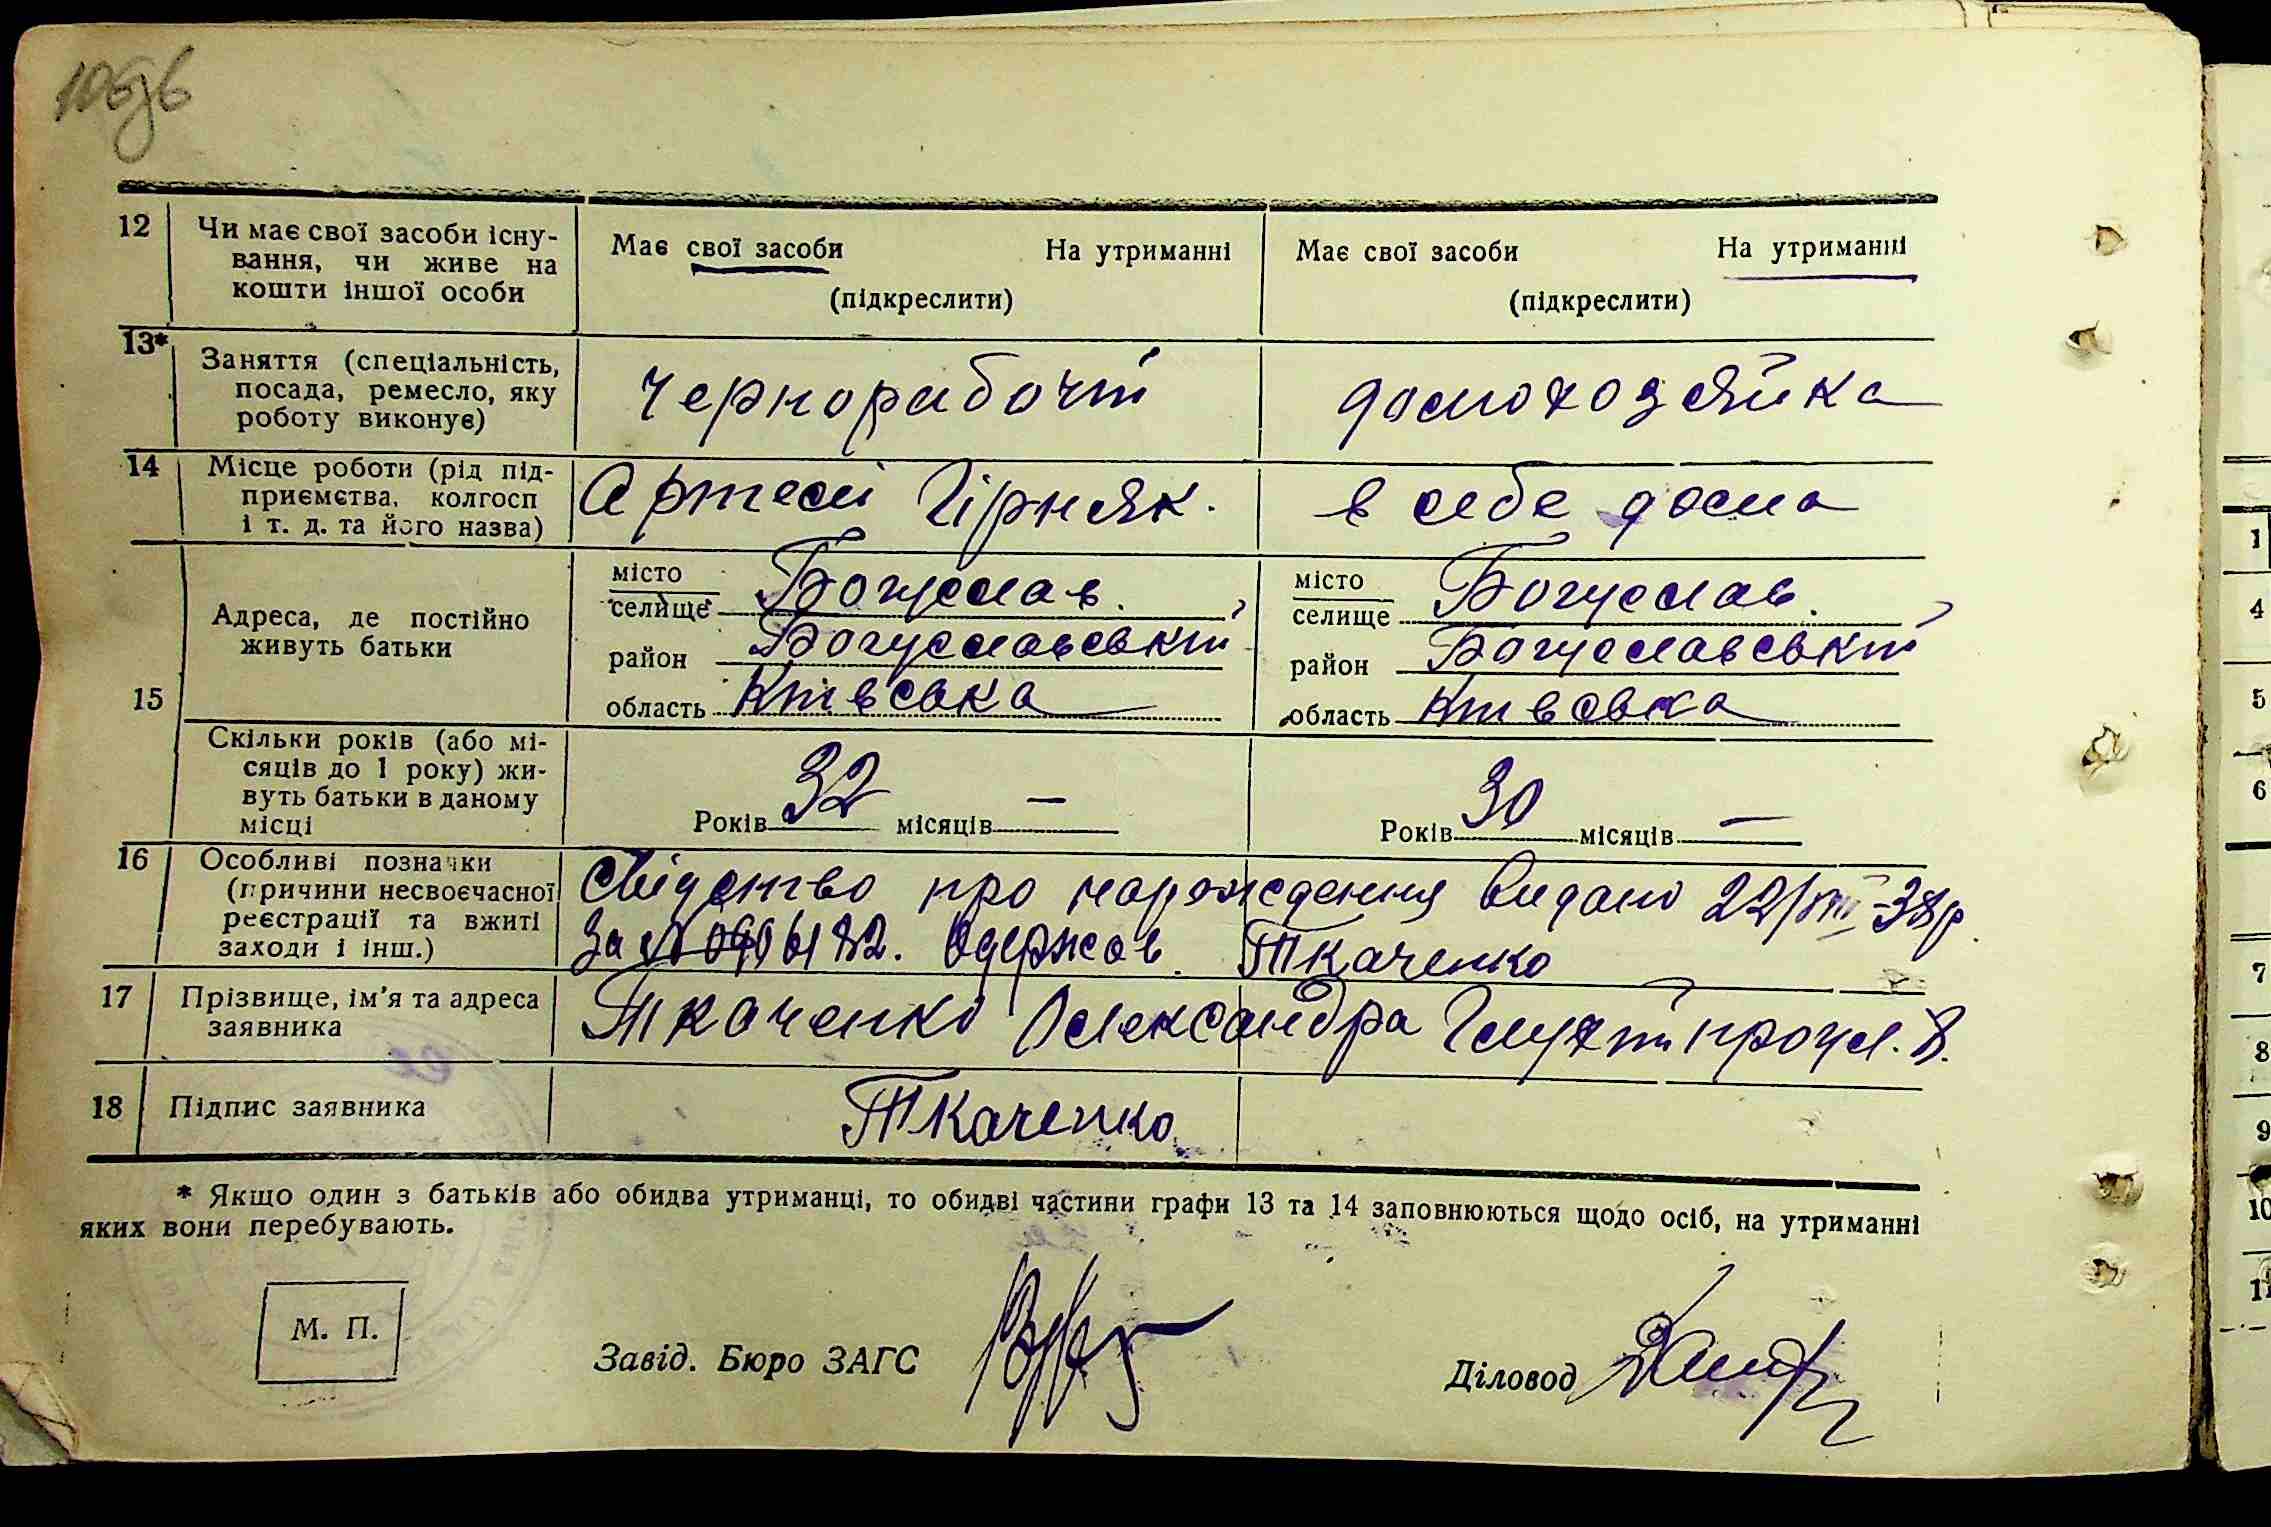 12 Чи має свої засоби існу-
вання, чи живе на
кошти іншої особи
Має свої засоби На утриманні
(підкреслити)
Має свої засоби На утриманні
(підкреслити)
13* Заняття (спеціальність,
посада, ремесло, яку
роботу виконує)
чернорабочий
домохозяйка
14 Місце роботи (рід під-
приємства, колгосп
і т. д. та його назва)
Артели Гірняк.
в себе дома
15 Адреса, де постійно
живуть батьки
місто
селище Богуслав.
район Богуславський
область Київська
місто
селище Богуслав.
район Богуславський
область Київська
Скільки років (або мі-
сяців до 1 року) жи-
вуть батьки в даному
місці
Років 32 місяців —
Років 30 місяців —
16 Особливі позначки
(причини несвоєчасної
реєстрації та вжиті
заходи і інш.)
Свідоцтво про нарождення видано 22/VIII-38р.
За № Одержав Ткаченко
17 Прізвище, ім'я та адреса
заявника
Ткаченко Олександра Глухий проул. 8.
18 Підпис заявника
Ткаченко
* Якщо один з батьків або обидва утриманці, то обидві частини графи 13 та 14 заповнюються щодо осіб, на утриманні
яких вони перебувають.
М. П.
Завід. Бюро ЗАГС
Діловод
1
4
5
6
7
8
9
10
11